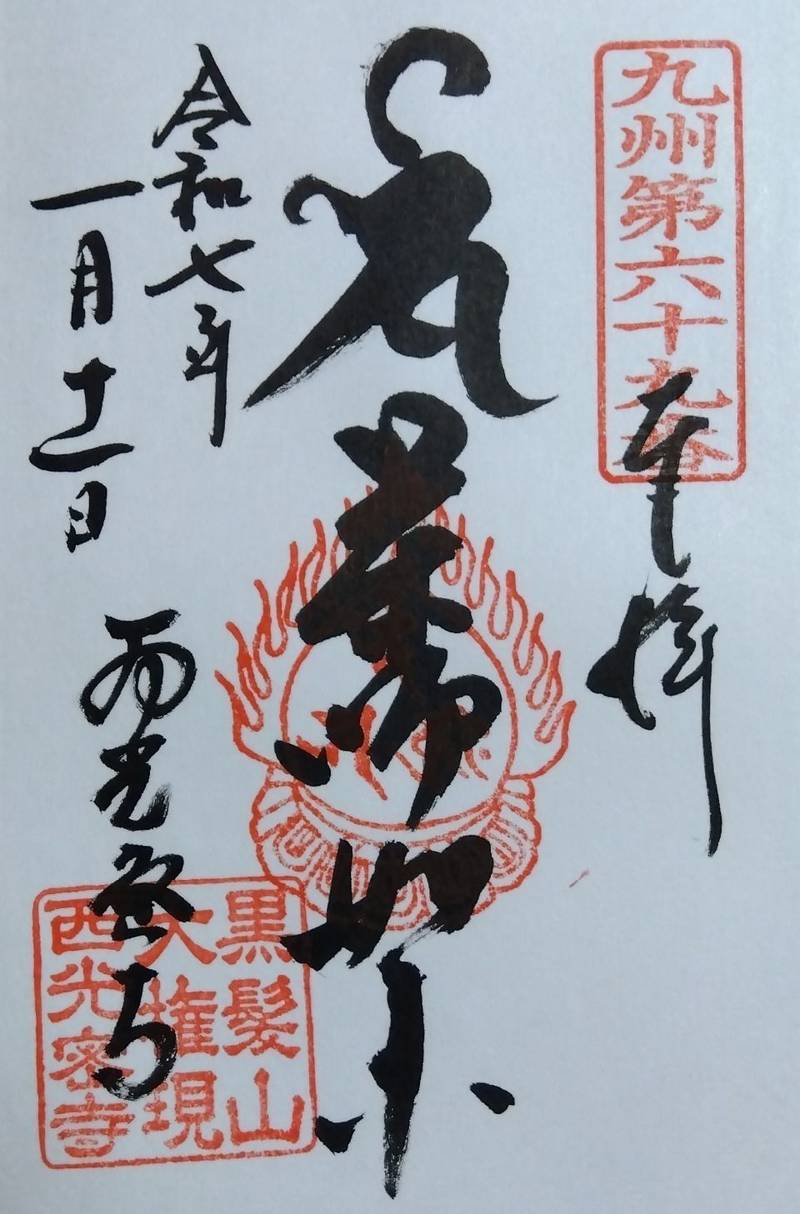 九州第六十九番
奉拝
薬師如来
令和七年
一月十一日
西光密寺
黒髪山
大権現
西光密寺